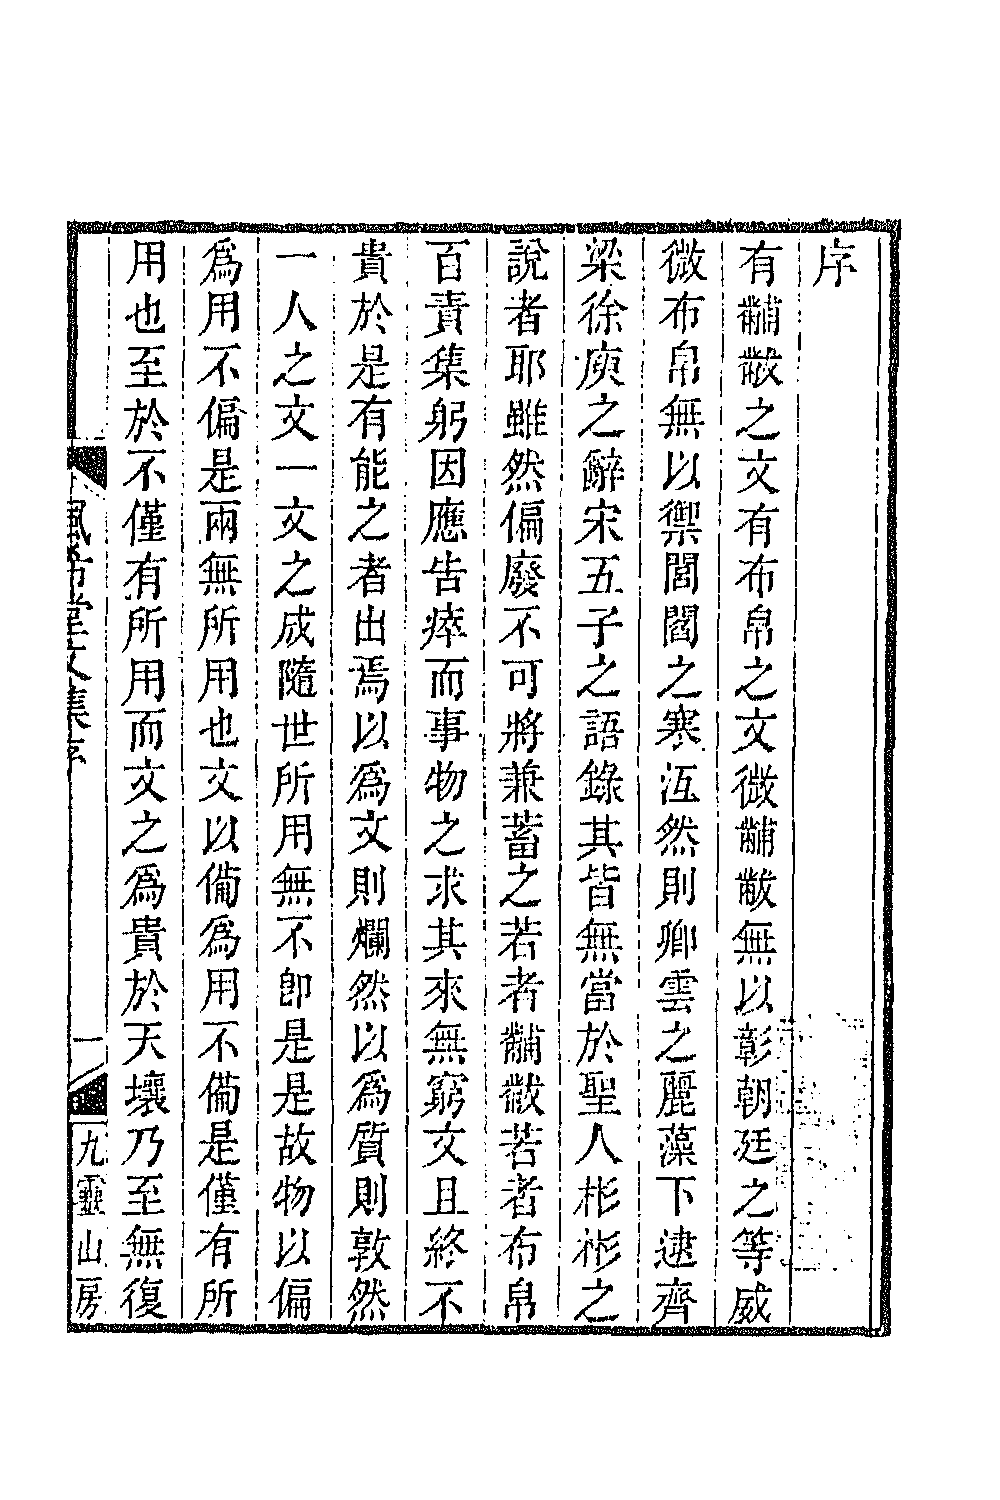 序
有黼黻之文有布帛之文微黼黻無以彰朝廷之等威
微布帛無以禦閭閻之寒沍然則卿雲之麗藻下逮齊
梁徐庾之辭宋五子之語錄其皆無當於聖人彬彬之
說者耶雖然偏廢不可將兼蓄之若者黼黻若者布帛
百責集躬因應告瘁而事物之求其來無窮文且終不
貴於是有能之者出焉以爲文則爛然以爲質則敦然
一人之文一文之成隨世所用無不卽是是故物以偏
爲用不偏是兩無所用也文以備爲用不備是僅有所
用也至於不僅有所用而文之爲貴於天壤乃至無復
堂文集序
一
九靈山房